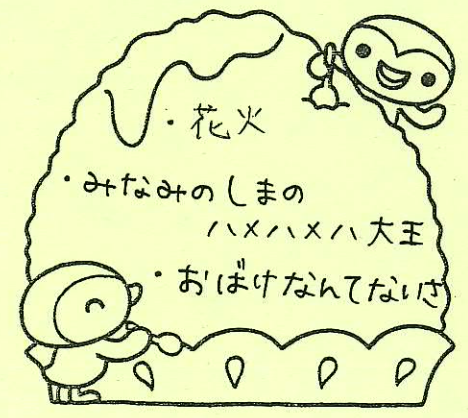 ・花火
・みなみのしまの
ハメハメハ大王
・おばけなんてないさ